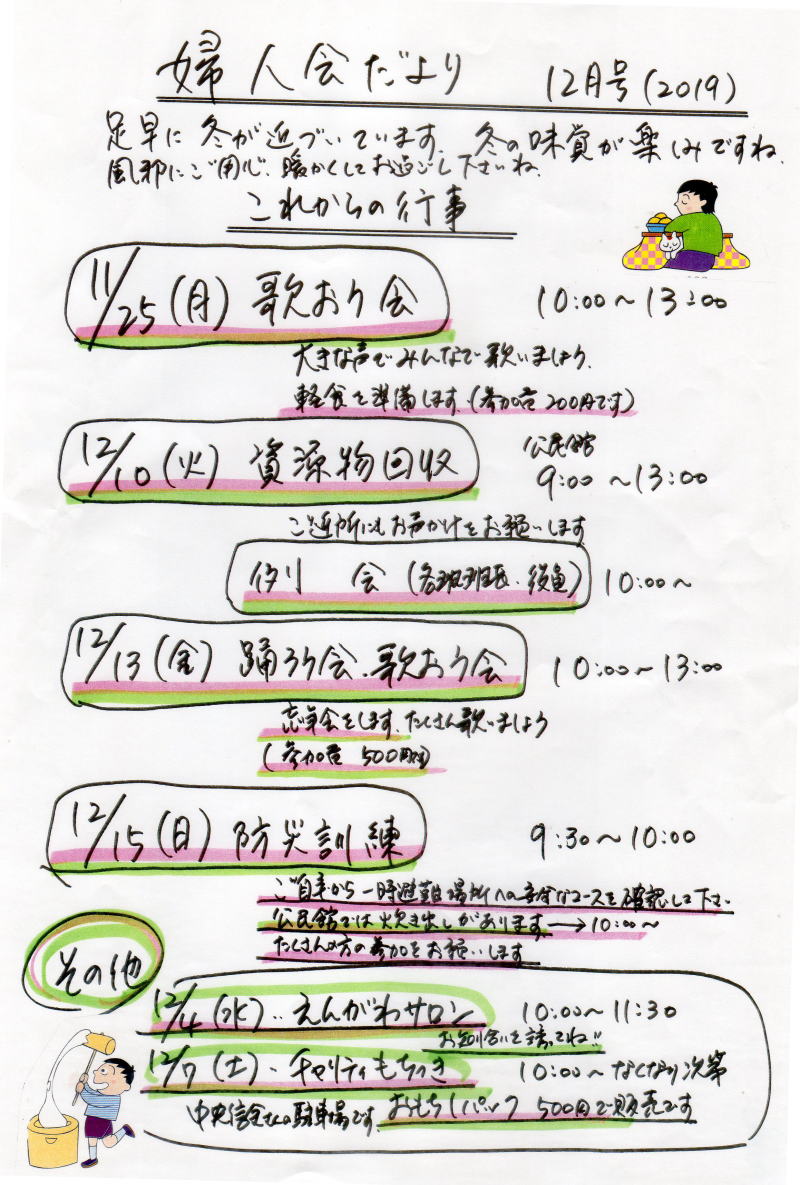 婦人会だより 12月号(2019)
足早に冬が近づいています。冬の味覚が楽しみですね。
風邪にご用心、暖かくしてお過ごし下さいね。
これからの行事
11/25(月) 歌おう会 10:00〜13:00
大きな声でみんなで歌いましょう。
軽食を準備します。(参加費 200円です)
12/10(火) 資源物回収 公民館 9:00〜13:00
ご近所にもお声かけをお願いします
役員会(各班班長・役員) 10:00〜
12/13(金) 踊ろう会・歌おう会 10:00〜13:00
忘年会をします。たくさん歌いましょう
(参加費 500円)
12/15(日) 防災訓練 9:30〜10:00
ご自宅から一時避難場所への安全なコースを確認して下さい
公民館では炊き出しがあります→10:00〜
たくさんの方の参加をお願いします
その他
12/4(水)‥えんがわサロン 10:00〜11:30
お知り合いを誘ってね!!
12/7(土)・チャリティもちつき 10:00〜なくなり次第
中央信金さんの駐車場です。おもち1パック 500円で販売です